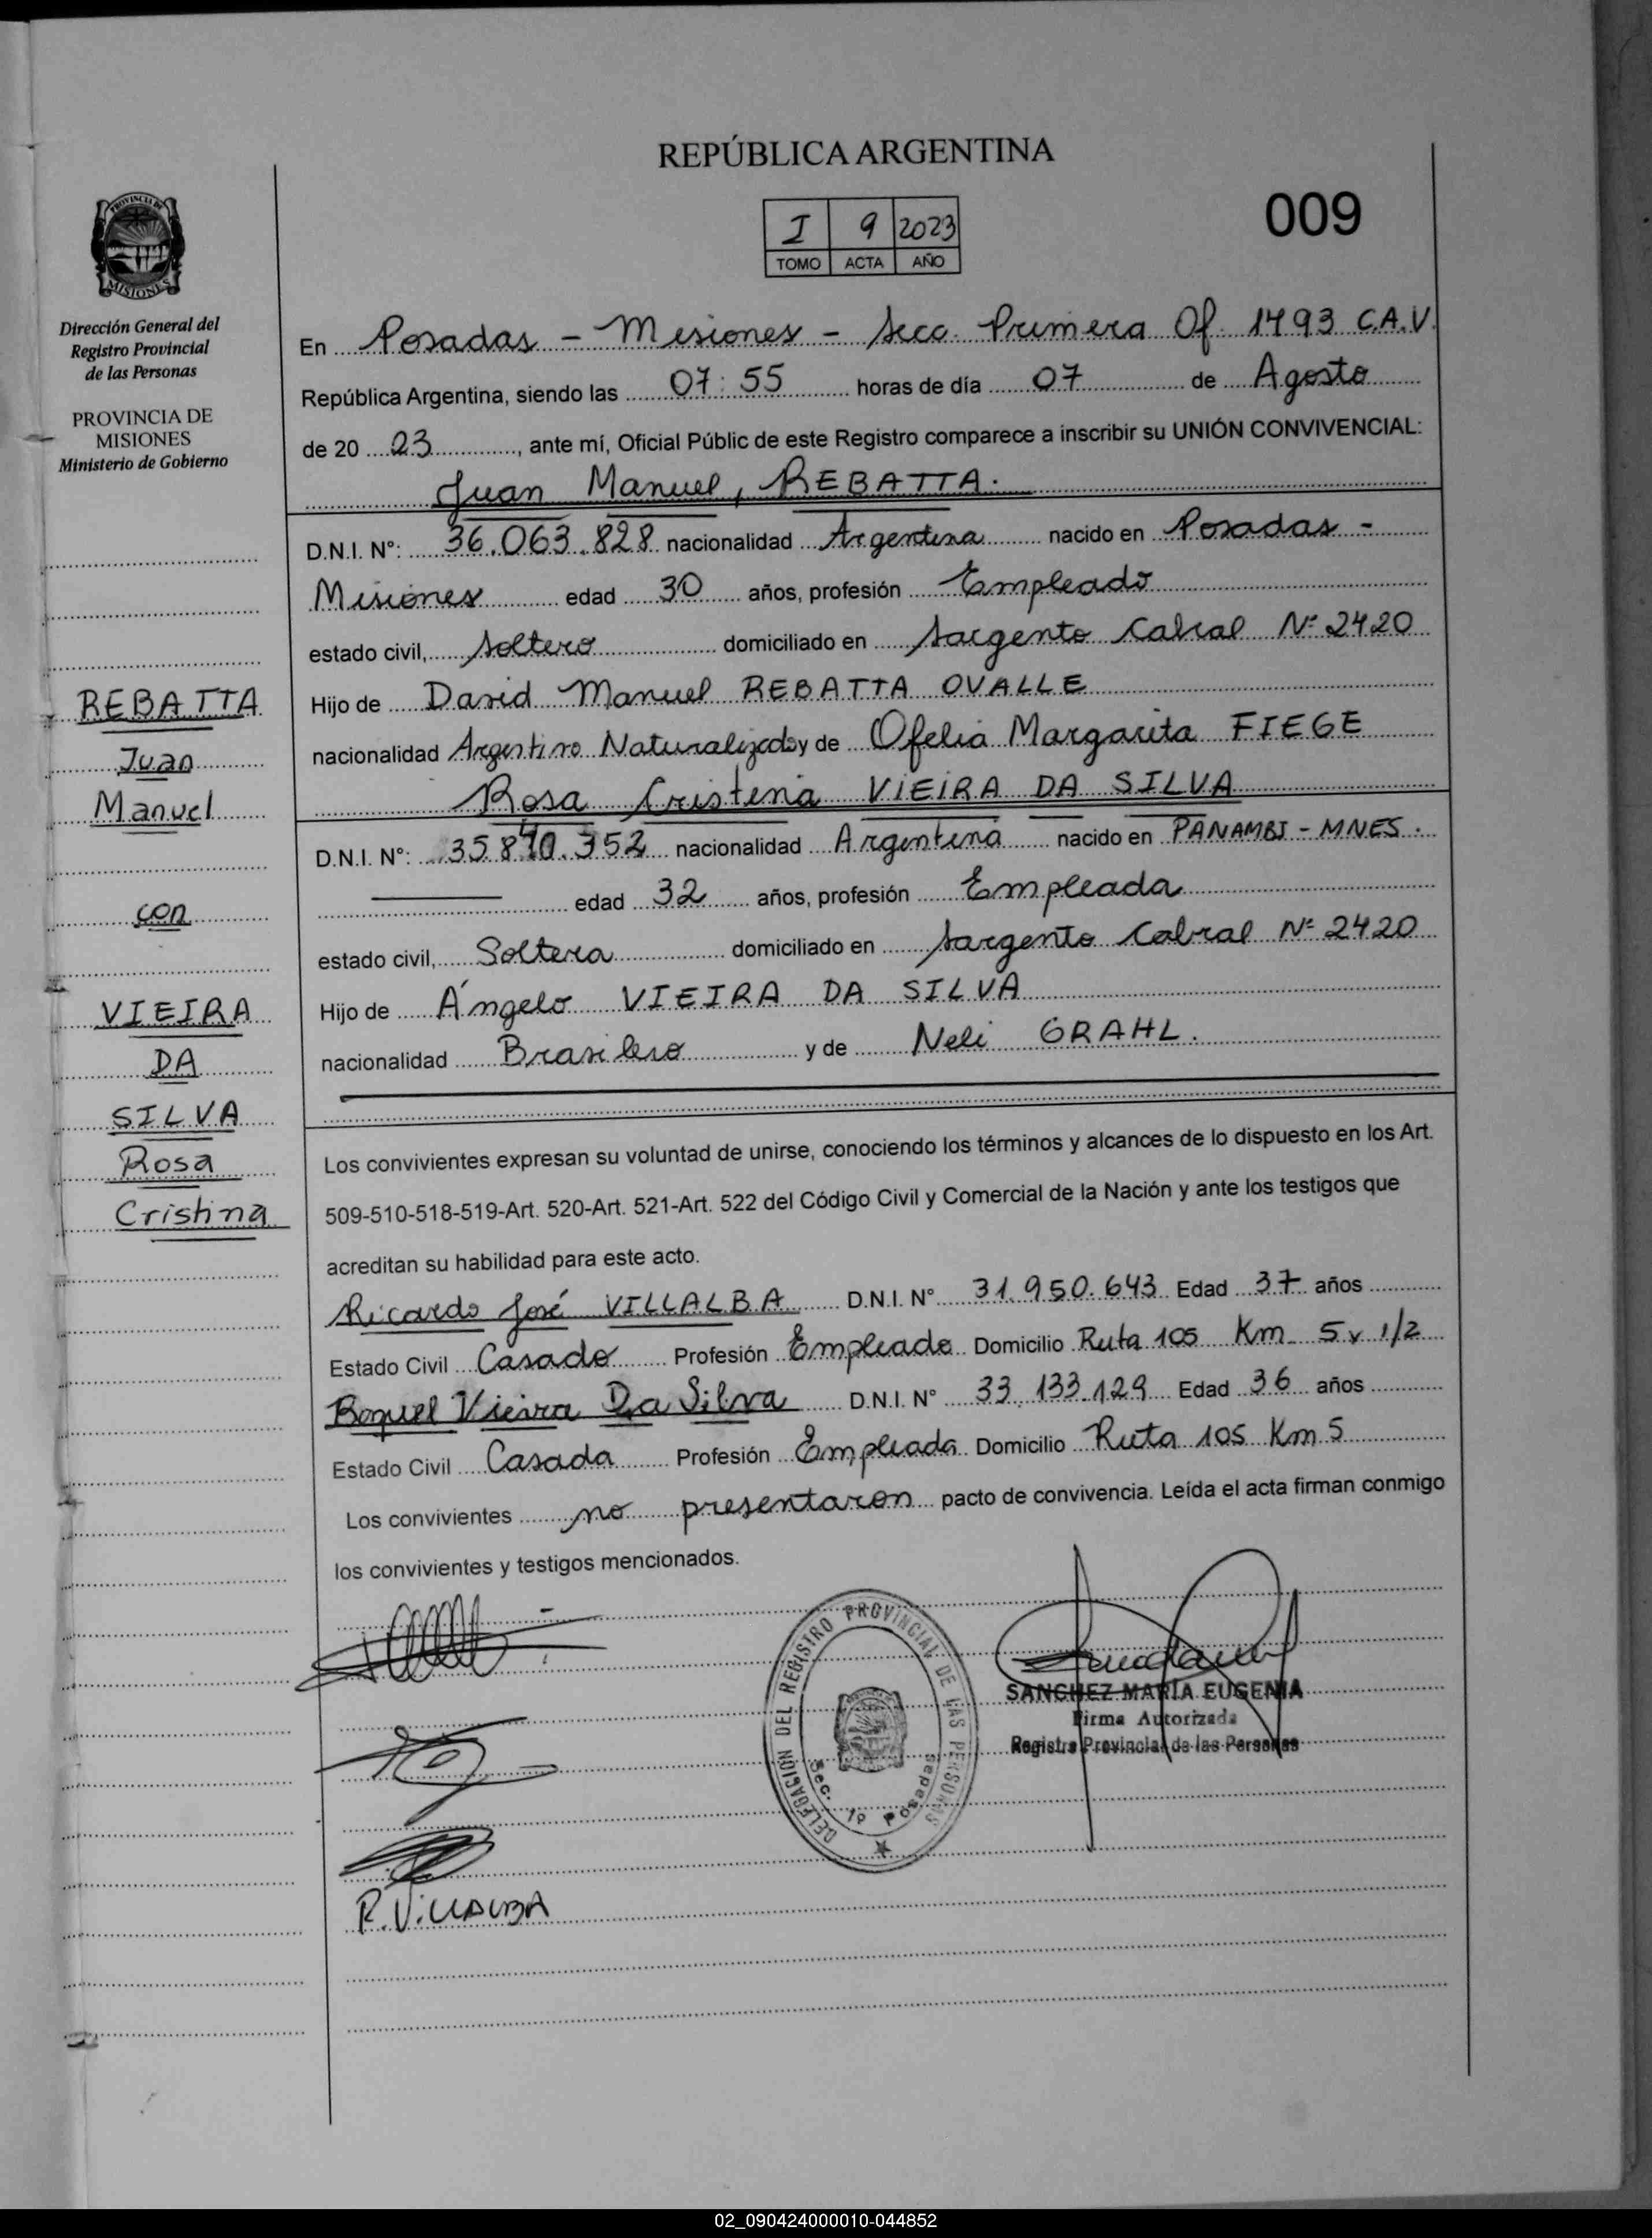 REPÚBLICA ARGENTINA
009
I 9 2023
TOMO ACTA AÑO
PROVINCIA DE
MISIONES
Dirección General del
Registro Provincial
de las Personas
PROVINCIA DE
MISIONES
Ministerio de Gobierno
REBATTA
Juan
Manuel
con
VIEIRA
DA
SILVA
Rosa
Cristina
En Posadas - Misiones - Secc. Primera Of. 1493 C.A.V.
República Argentina, siendo las 07:55 horas de día 07 de Agosto
de 20 23, ante mí, Oficial Públic de este Registro comparece a inscribir su UNIÓN CONVIVENCIAL:
Juan Manuel, REBATTA.
D.N.I. N°: 36.063.828 nacionalidad Argentina nacido en Posadas -
Misiones edad 30 años, profesión Empleado
estado civil, Soltero domiciliado en Sargento Cabral N° 2420
Hijo de David Manuel REBATTA OVALLE
nacionalidad Argentino Naturalizado y de Ofelia Margarita FIEGE
Rosa Cristina VIEIRA DA SILVA
D.N.I. N°: 35.870.352 nacionalidad Argentina nacido en PANAMBI - MNES.
edad 32 años, profesión Empleada
estado civil, Soltera domiciliado en Sargento Cabral N° 2420
Hijo de Ángelo VIEIRA DA SILVA
nacionalidad Brasilero y de Neli GRAHL.
Los convivientes expresan su voluntad de unirse, conociendo los términos y alcances de lo dispuesto en los Art.
509-510-518-519-Art. 520-Art. 521-Art. 522 del Código Civil y Comercial de la Nación y ante los testigos que
acreditan su habilidad para este acto.
Ricardo José VILLALBA D.N.I. N° 31.950.643 Edad 37 años
Estado Civil Casado Profesión Empleado Domicilio Ruta 105 Km 5 y 1/2
Roquel Vieira Da Silva D.N.I. N° 33.133.129 Edad 36 años
Estado Civil Casada Profesión Empleada Domicilio Ruta 105 Km 5
Los convivientes no presentaron pacto de convivencia. Leída el acta firman conmigo
los convivientes y testigos mencionados.
DELEGACIÓN DEL REGISTRO PROVINCIAL DE LAS PERSONAS
Sec. 1º Posadas
SANCHEZ MARÍA EUGENIA
Firma Autorizada
Registro Provincial de las Personas
R. VILLALBA
02_090424000010-044852